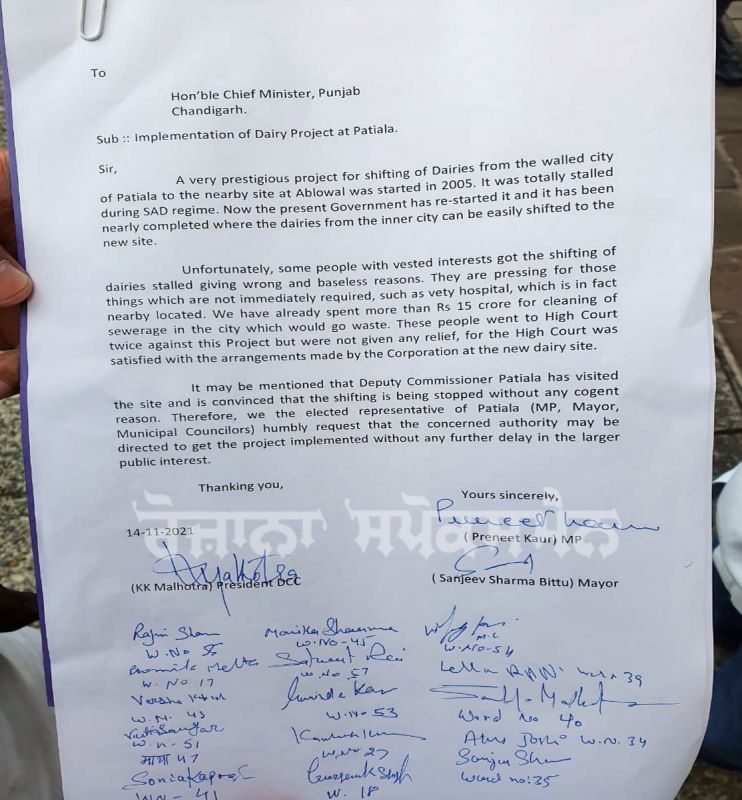 To
Hon'ble Chief Minister, Punjab
Chandigarh.
Sub :: Implementation of Dairy Project at Patiala.
Sir,
A very prestigious project for shifting of Dairies from the walled city
of Patiala to the nearby site at Ablowal was started in 2005. It was totally stalled
during SAD regime. Now the present Government has re-started it and it has been
nearly completed where the dairies from the inner city can be easily shifted to the
new site.
Unfortunately, some people with vested interests got the shifting of
dairies stalled giving wrong and baseless reasons. They are pressing for those
things which are not immediately required, such as vety hospital, which is in fact
nearby located. We have already spent more than Rs 15 crore for cleaning of
sewerage in the city which would go waste. These people went to High Court
twice against this Project but were not given any relief, for the High Court was
satisfied with the arrangements made by the Corporation at the new dairy site.
It may be mentioned that Deputy Commissioner Patiala has visited
the site and is convinced that the shifting is being stopped without any cogent
reason. Therefore, we the elected representative of Patiala (MP, Mayor,
Municipal Councilors) humbly request that the concerned authority may be
directed to get the project implemented without any further delay in the larger
public interest.
Thanking you,
Yours sincerely,
ਰੋਜ਼ਾਨਾ ਸਪੋਕਸਮੈਨ
14-11-2021
Preneet Kaur
(Preneet Kaur) MP
(KK Malhotra) President DCC
(Sanjeev Sharma Bittu) Mayor
Rajni Sharma
W.No 55
Monika Sharma
W.No-45
M.C
W.No-54
W. No 17
W.No 57
39
W.N. 43
W.No-53
Word No 40
W.n-51
W.No 27
Atul Joshi W.N. 34
माया 47
Sonia Kapoor
W.N-41
Gursewak Singh
W. 18
Sanjeev Sharma
Ward no: 35